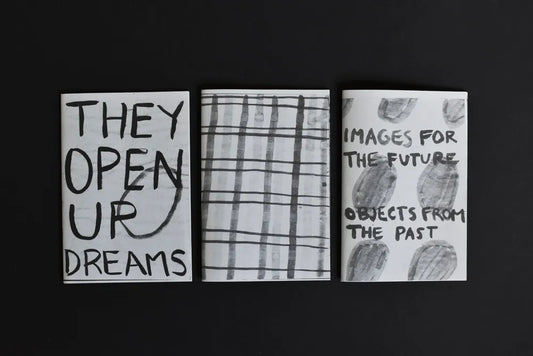 THEY
OPEN
UP
DREAMS
IMAGES FOR
THE FUTURE
OBJECTS FROM
THE PAST